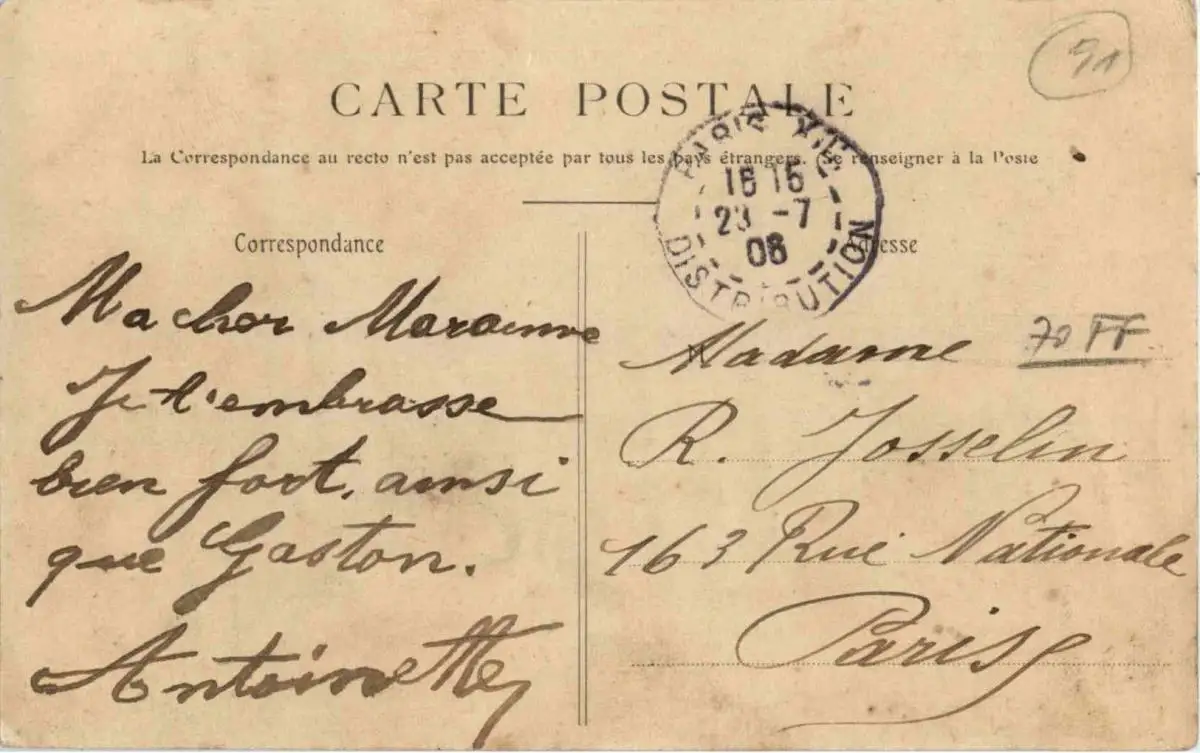 91
CARTE POSTALE
La Correspondance au recto n'est pas acceptée par tous les pays étrangers. (Se renseigner à la Poste
PARIS
16 15
23 -7
08
DISTRIBUTION
Correspondance
Adresse
Ma cher
Je t'embrasse
bien fort, ainsi
que Gaston.
Antoinette
Madame
70 FF
R. Josselin
163 Rue Nationale
Paris